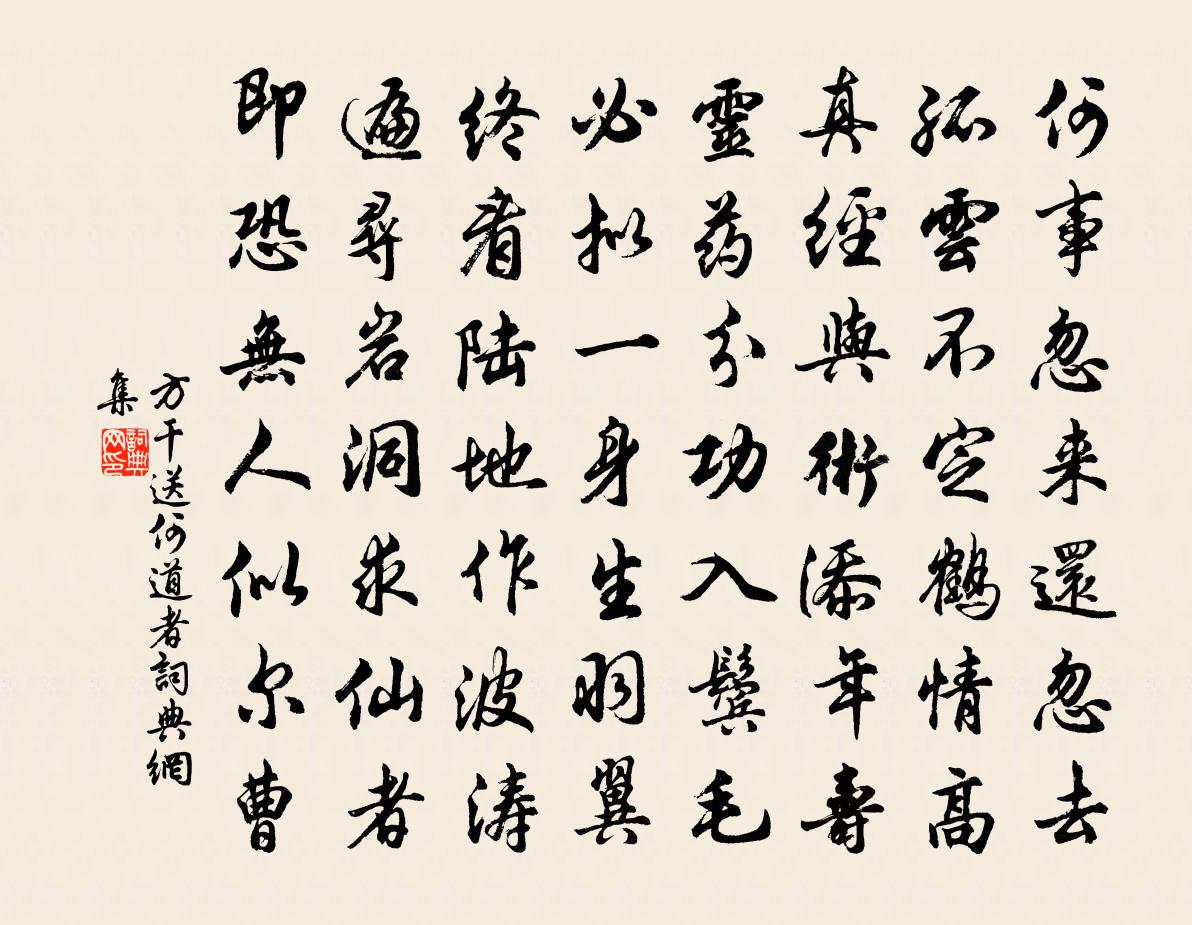 何事忽来還忽去
孤雲不定鶴情高
真經與術添年壽
靈药分功入鬓毛
必拟一身生羽翼
終看陆地作波涛
遍尋岩洞求仙者
即恐無人似尔曹
方干送何道者詞典網
集
詞典
网印